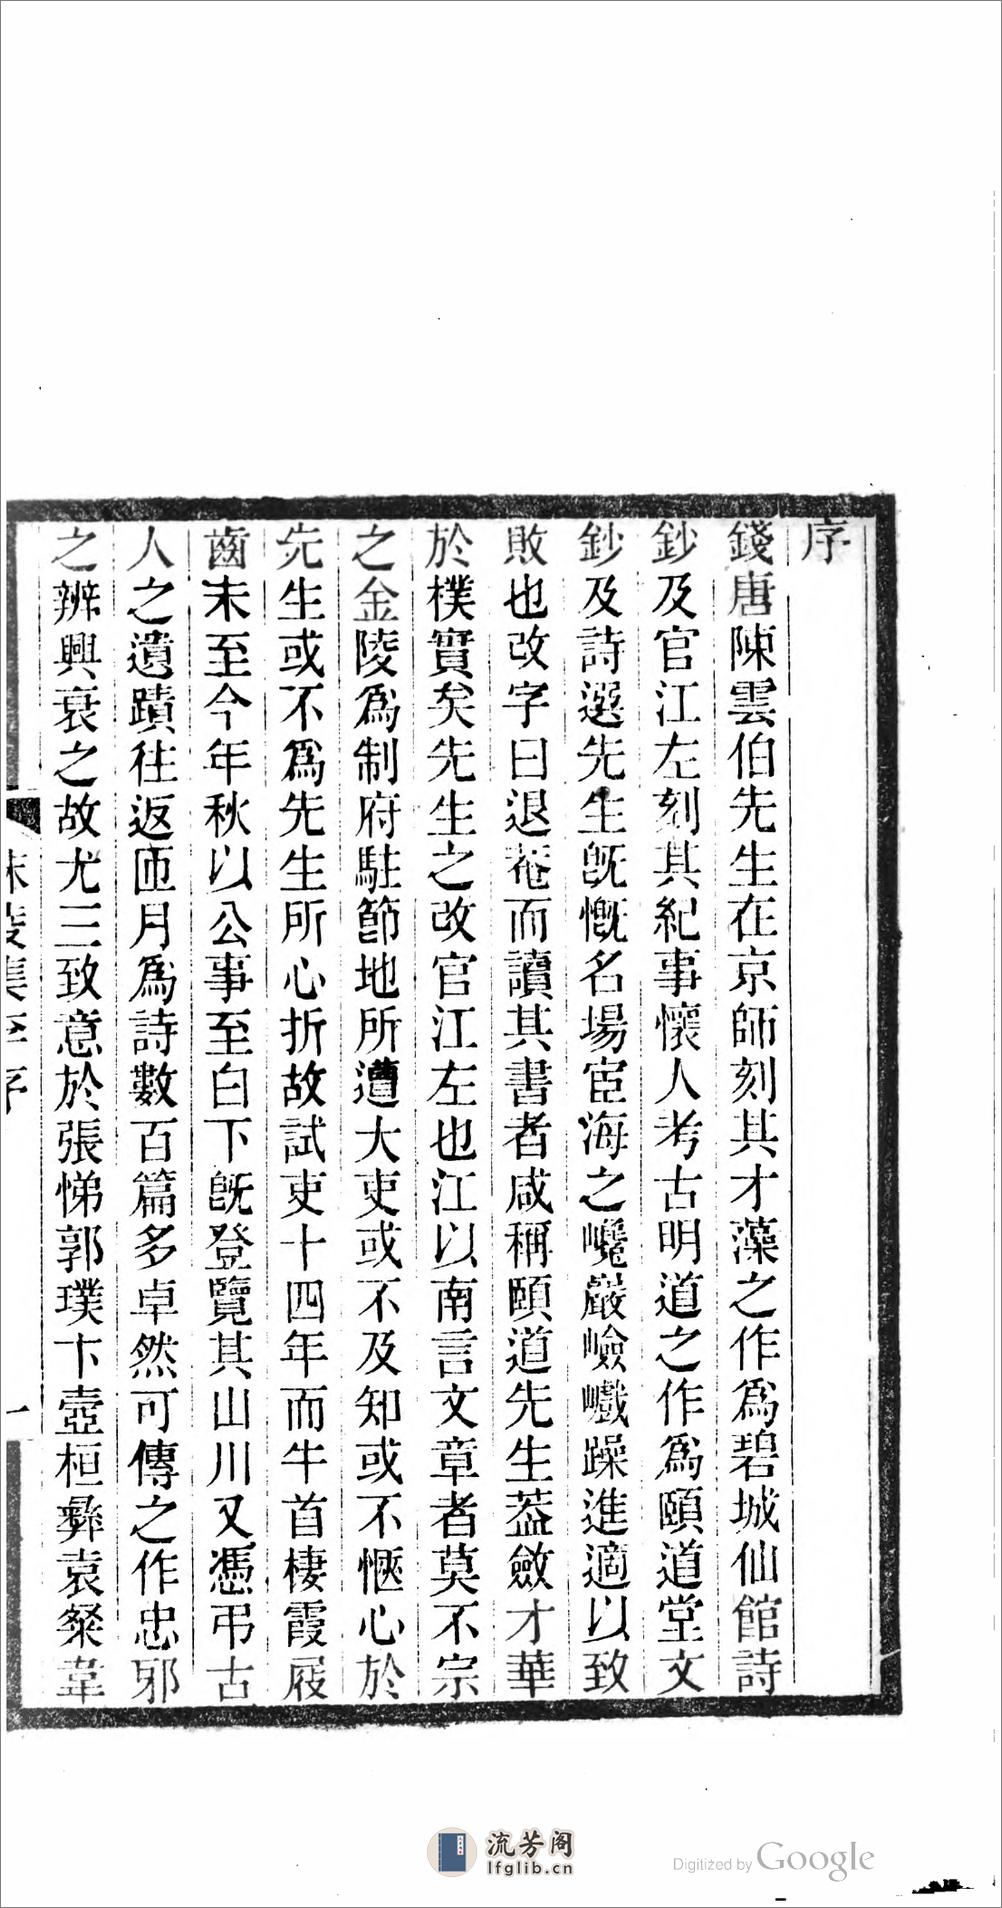 序
錢唐陳雲伯先生在京師刻其才藻之作爲碧城仙館詩
鈔及官江左刻其紀事懷人考古明道之作爲頤道堂文
鈔及詩選先生旣慨名場宦海之巉巖嶮巇躁進適以致
敗也改字曰退菴而讀其書者咸稱頤道先生葢斂才華
於樸實矣先生之改官江左也江以南言文章者莫不宗
之金陵爲制府駐節地所遭大吏或不及知或不愜心於
先生或不爲先生所心折故試吏十四年而牛首棲霞屐
齒未至今年秋以公事至白下旣登覽其山川又憑弔古
人之遺蹟往返匝月爲詩數百篇多卓然可傳之作忠邪
之辨興衰之故尤三致意於張悌郭璞卞壼桓彝袁粲韋
秣陵集序
一
流芳阁
lfglib.cn
Digitized by Google